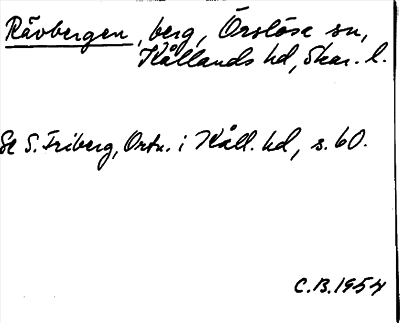 Rävbergen, berg, Örslösa sn,
Kållands hd, Skar. l.
Se S. Friberg, Ortn. i Kåll. hd, s. 60.
C.B. 1954